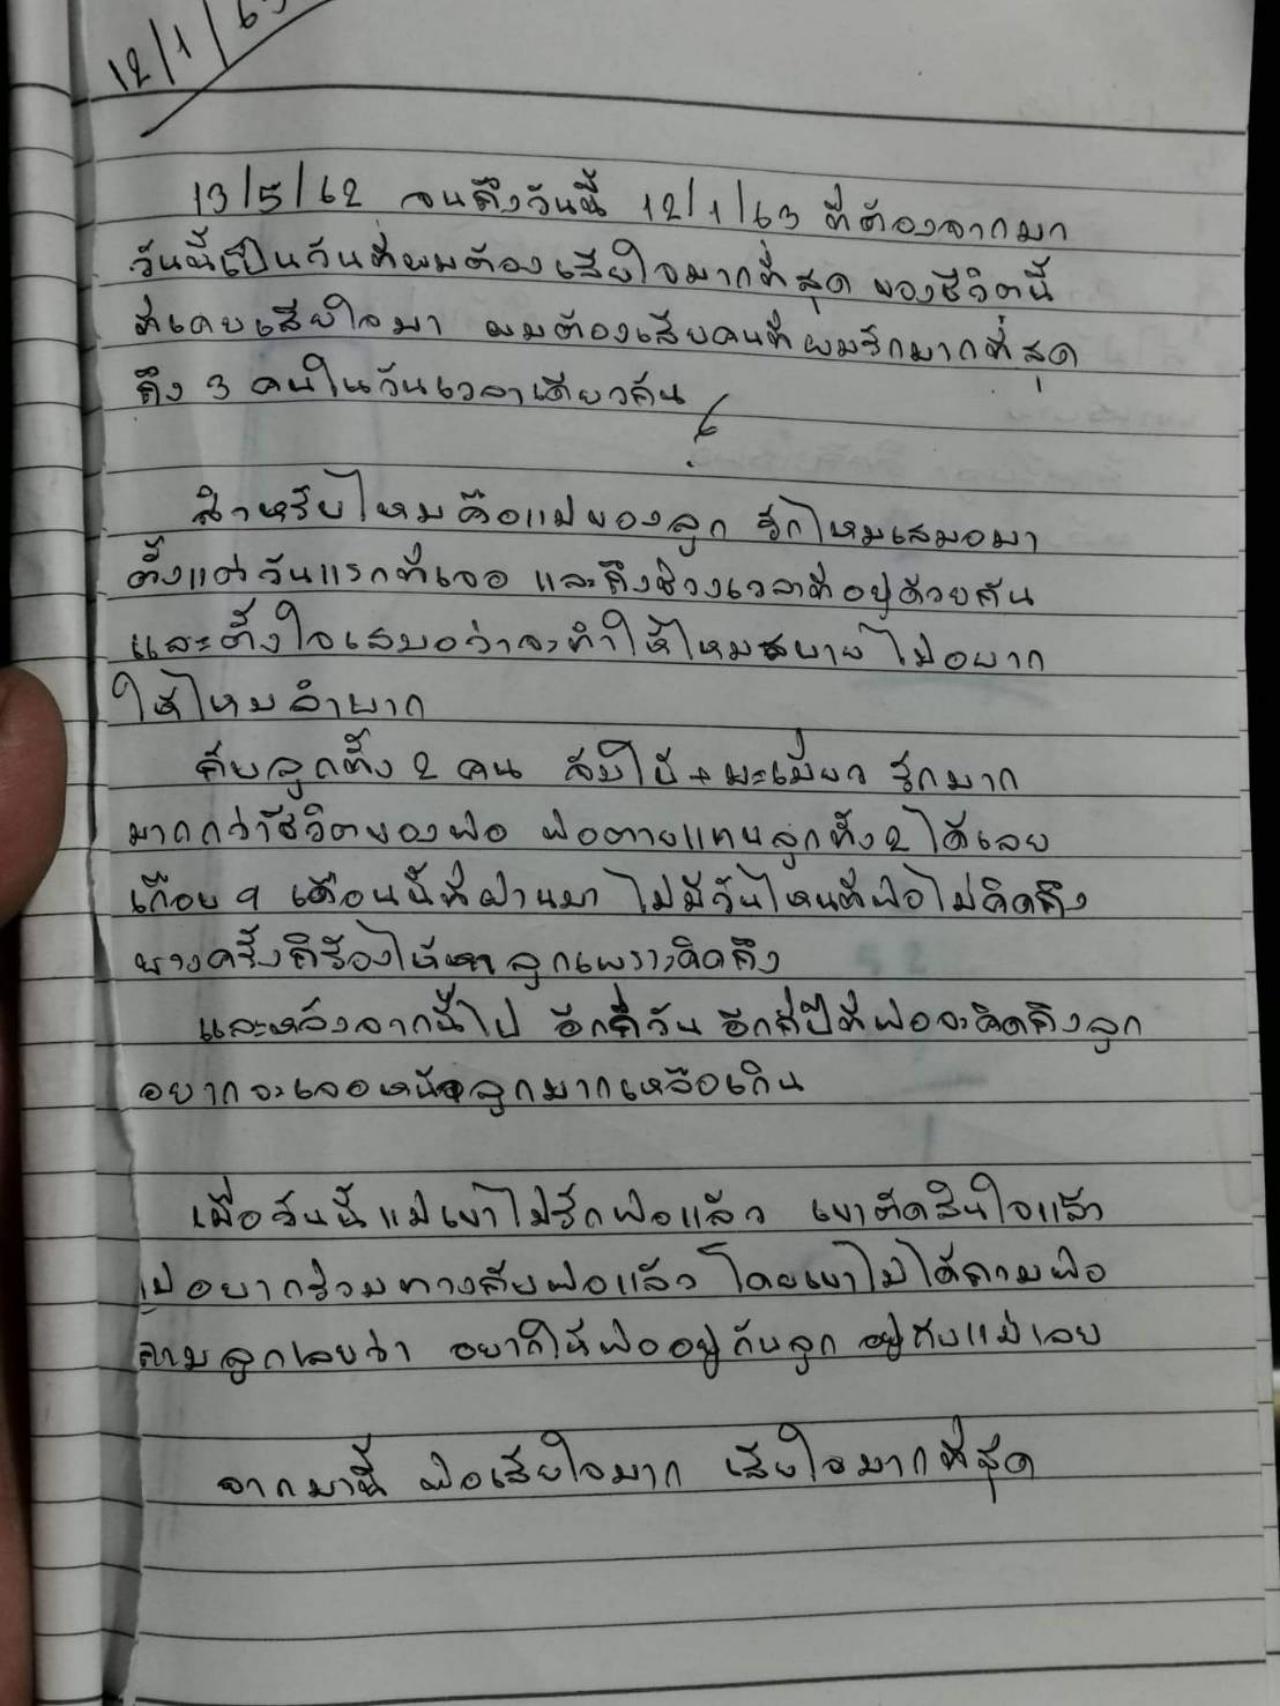 12/1/63
13/5/62 จนถึงวันนี้ 12/1/63 ที่ต้องจากมา
วันนี้เป็นวันที่ผมต้องเสียใจมากที่สุด ของชีวิตนี้
ที่เคยเสียใจมา ผมต้องเสียคนที่ผมรักมากที่สุด
ถึง 3 คนในวันเวลาเดียวกัน
สำหรับไหมคือแม่ของลูก รักไหมเสมอมา
ตั้งแต่วันแรกที่เจอ และถึงช่วงเวลาที่อยู่ด้วยกัน
และตั้งใจเสมอว่าจะทำให้ไหมสบาย ไม่อยาก
ให้ไหมลำบาก
กับลูกทั้ง 2 คน ใบ + มะเมี่ยว รักมาก
มากกว่าชีวิตของพ่อ พ่อตายแทนลูกทั้ง 2 ได้เลย
เกือบ 9 เดือนนี้ที่ผ่านมา ไม่มีวันไหนที่พ่อไม่คิดถึง
บางครั้งก็ร้องไห้หาลูกเพราะคิดถึง
และหลังจากนี้ไป อีกกี่วัน อีกกี่ปีที่พ่อจะคิดถึงลูก
อยากจะเจอหน้าลูกมากเหลือเกิน
เมื่อวันนี้แม่เขาไม่รักพ่อแล้ว เขาตัดสินใจแล้ว
ไม่อยากร่วมทางกับพ่อแล้ว โดยเขาไม่ได้ถามพ่อ
ถามลูกเลยว่า อยากให้พ่ออยู่กับลูก อยู่กับแม่เลย
จากมานี้ พ่อเสียใจมาก เสียใจมากที่สุด